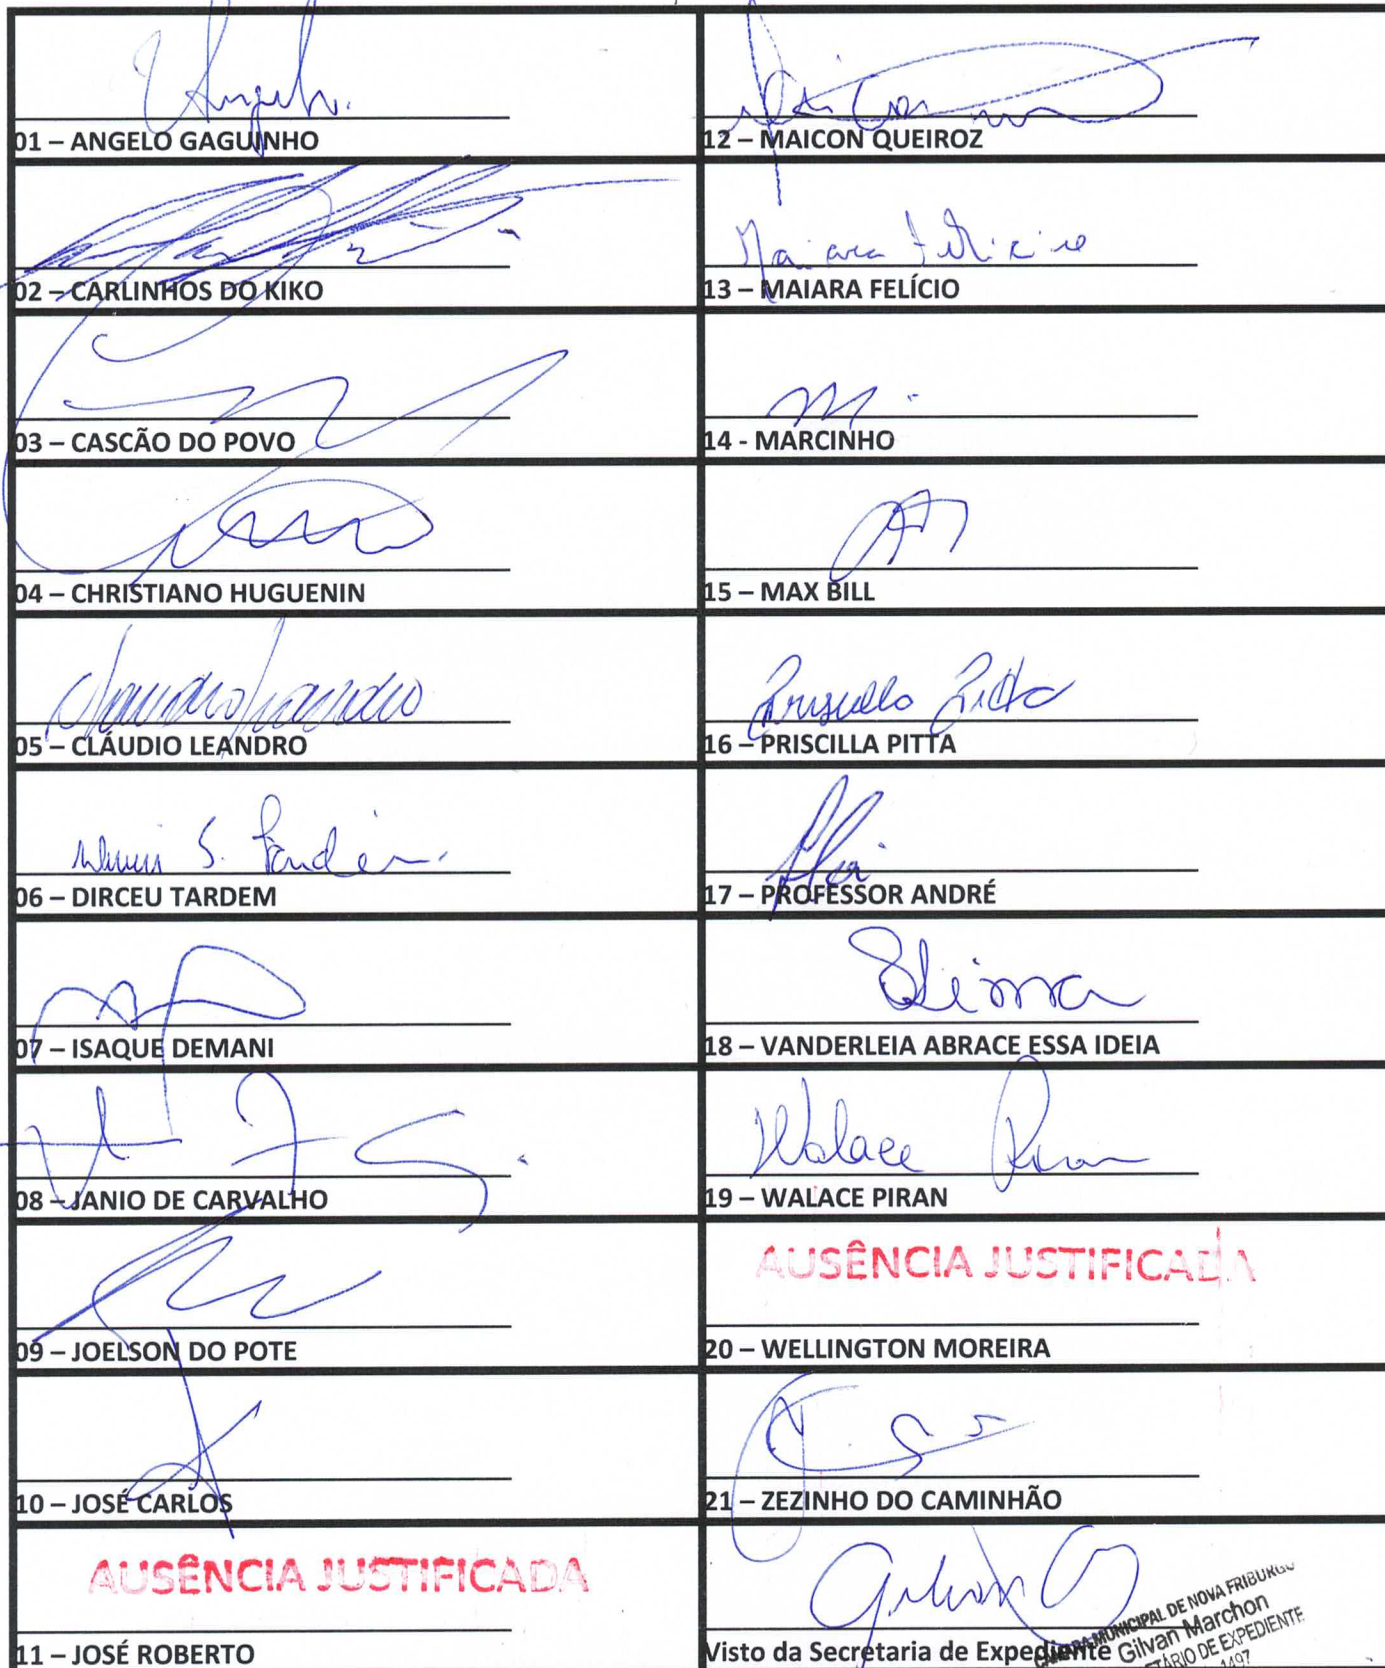 Angelo.
01 – ANGELO GAGUINHO
02 – CARLINHOS DO KIKO
03 – CASCÃO DO POVO
04 – CHRISTIANO HUGUENIN
05 – CLÁUDIO LEANDRO
S.
06 – DIRCEU TARDEM
07 – ISAQUE DEMANI
08 – JANIO DE CARVALHO
09 – JOELSON DO POTE
10 – JOSÉ CARLOS
AUSÊNCIA JUSTIFICADA
11 – JOSÉ ROBERTO
Maicon
12 – MAICON QUEIROZ
Maiara Felício
13 – MAIARA FELÍCIO
14 - MARCINHO
15 – MAX BILL
Priscilla Pitta
16 – PRISCILLA PITTA
17 – PROFESSOR ANDRÉ
18 – VANDERLEIA ABRACE ESSA IDEIA
Walace Piran
19 – WALACE PIRAN
AUSÊNCIA JUSTIFICADA
20 – WELLINGTON MOREIRA
21 – ZEZINHO DO CAMINHÃO
Gilvan
Visto da Secretaria de Expediente
MUNICIPAL DE NOVA FRIBURGO
Gilvan Marchon
DE EXPEDIENTE
1497